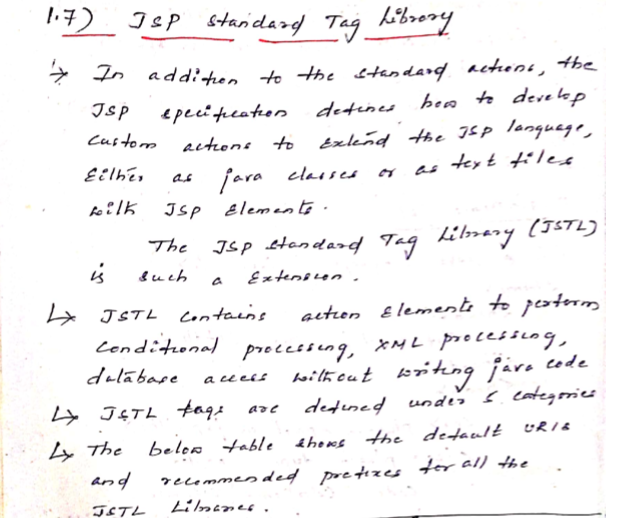 1.7) JSP Standard Tag Library
↳ In addition to the standard actions, the
JSP specification defines how to develop
custom actions to extend the JSP language,
Either as java classes or as text files
with JSP Elements.
The JSP Standard Tag Library (JSTL)
is such a Extension.
↳ JSTL contains action Elements to perform
Conditional processing, XML processing,
database access without writing java code
↳ JSTL tags are defined under 5 categories
↳ The below table shows the default URIs
and recommended prefixes for all the
JSTL Libraries.